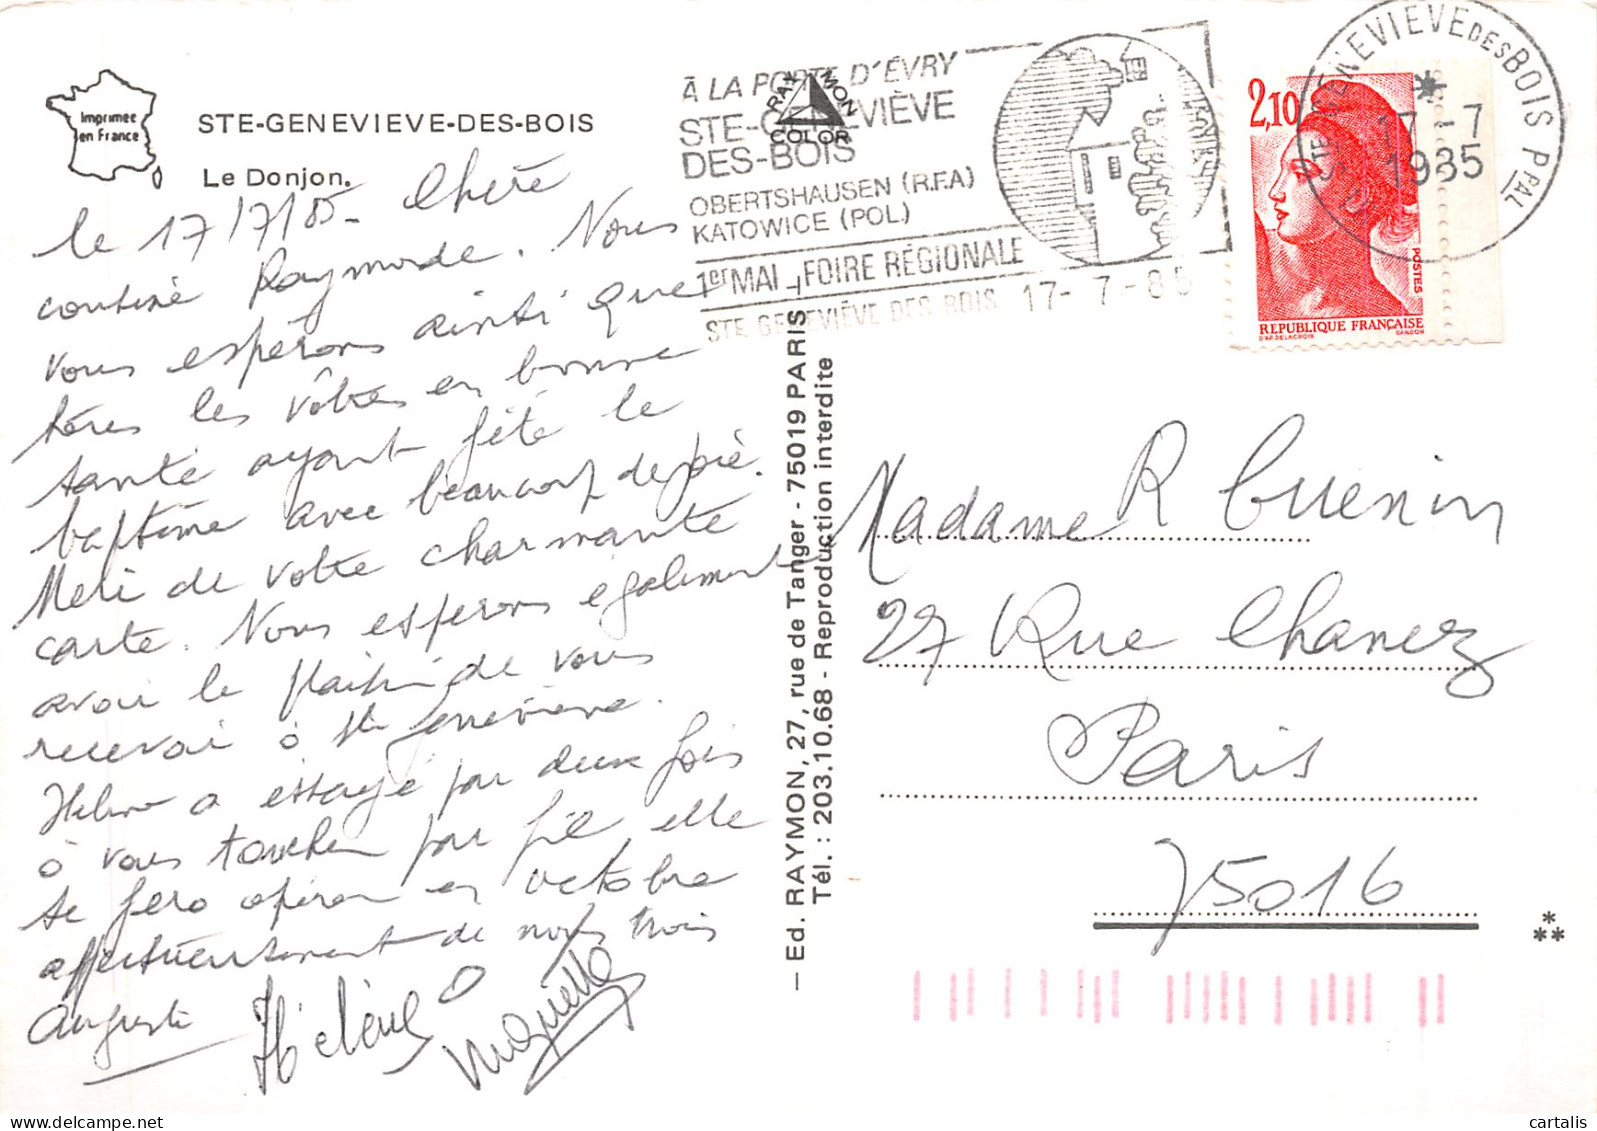 Imprimée
en France
STE-GENEVIEVE-DES-BOIS
Le Donjon.
le 17/7/85- Chère
cousine Raymonde. Nous
vous espérons ainsi que
tères les vôtres en bonne
santé ayant fété le
baptême avec beaucoup de joie.
Merci de votre charmante
carte. Nous esperons egalement
avoir le plaisir de vous
recevoir à Ste Geneviève.
Hélène a éssayé par deux fois
à vous toucher par fil elle
se fera opérer en octobre
affectueusement de nous trois
Auguste Hélène Huguette
À LA PORTE D'ÉVRY
STE-GENEVIÈVE
DES-BOIS
OBERTSHAUSEN (R.F.A)
KATOWICE (POL)
1er MAI - FOIRE RÉGIONALE
STE GENEVIÈVE DES BOIS 17-7-85
RAYMON
COLOR
STE GENEVIEVE DES BOIS PPAL
17-7
1985
2,10
POSTES
REPUBLIQUE FRANÇAISE
D'AP. DELACROIX GANDON
— Ed. RAYMON, 27, rue de Tanger - 75019 PARIS
Tél. : 203.10.68 - Reproduction interdite
Madame R Guenin
27 Rue Chanez
Paris
75016
cartalis